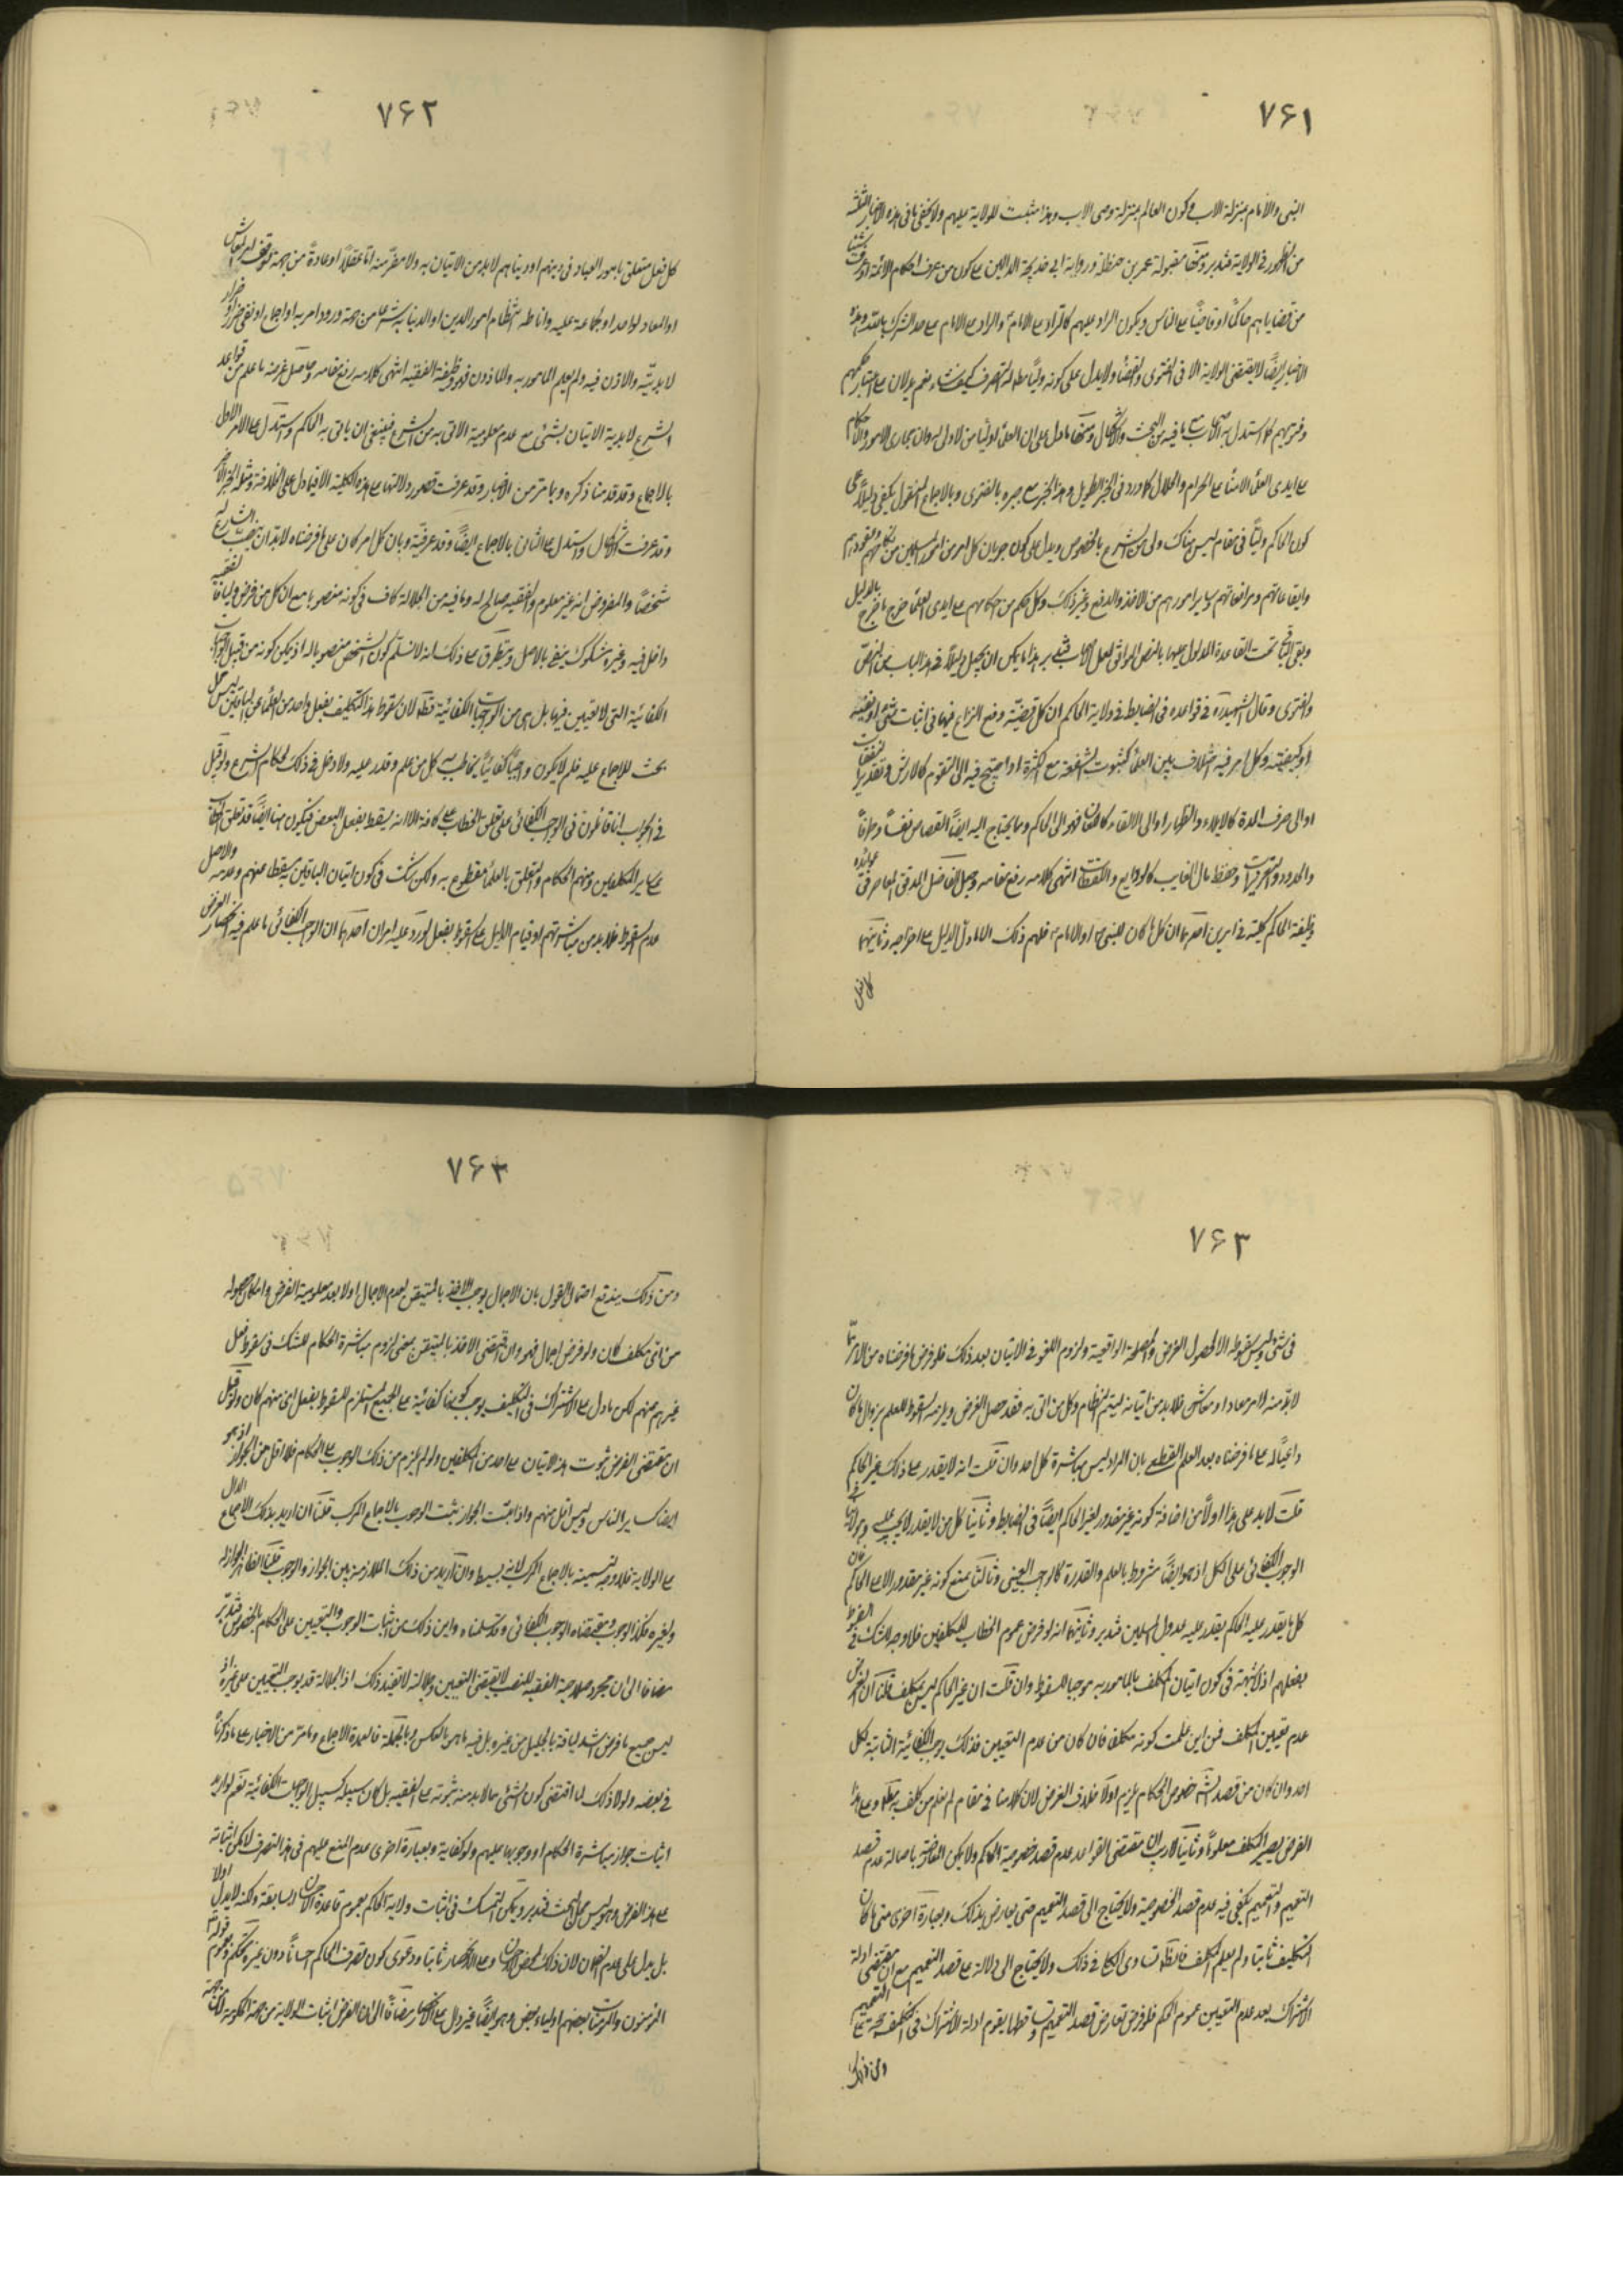 ۷۶۱
النبی والامام بمنزلة الاب وکون العالم بمنزلة وصی الاب وهذا مثبت للولایة علیهم ولا یخفی ما فی هذه الاخبار الثلثة
من الظهور فی الولایة فتدبر ومنها مقبولة عمر بن حنظلة وروایة ابی خدیجة الدالین علی کون من عرف احکام الائمة او عرف شیئا
من قضایاهم حاکماً او قاضیاً علی الناس ویکون الراد علیهم کالراد علی الامام والراد علی الامام علی حد الشرک بالله وهذه
الاخبار ایضاً لا یقتضی الولایة الا فی الفتوی والقضاء ولا یدل علی کونه ولیاً مطلقا له التصرف کیف شاء نعم یدلان علی اعتبار حکمهم
وفتویهم کما استدل به الاصحاب علی ما فیه من البحث والاشکال ومنها ما دل علی ان العلماء اولیاء من لا ولی له وان مجاری الامور والاحکام
علی ایدی العلماء الامناء علی الحرام والحلال کما ورد فی الخبر الطویل وهذا الخبر مع جبره بالفتوی وبالاجماع المنقول یکفی دلیلاً علی
کون الحاکم ولیاً فی مقام لیس هناک ولی من الشرع بالخصوص ویدل علی کون جریان کل امر من امور المسلمین من نکاحهم وعقودهم
وایقاعاتهم ومرافعاتهم وسایر امورهم من الاخذ والدفع وغیر ذلک وکل حکم من احکامهم علی ایدی العلماء خرج ما خرج بالدلیل
وبقی الباقی تحت القاعدة المدلول علیها بالنص الموافق لعمل الاصحاب فتدبر هذا ما یمکن ان یجعل دلیلاً فی هذا الباب من النص
والفتوی وقال الشهید ره فی قواعده فی الضابط فی ولایة الحاکم ان کل قضیّة وقع النزاع فیها فی اثبات شئ او نفیه
او کیفیته وکل امر فیه اختلاف بین العلماء کثبوت الشفعة مع الکثرة او احتیج فیه الی التقویم کالارش وتقدیر النفقات
او الی ضرب المدة کالایلاء والظهار او الی الالقاء کاللعان فهو الی الحاکم ومما یحتاج الیه ایضاً القصاص نفساً وطرفاً
والحدود والتعزیرات وحفظ مال الغایب کالودایع واللقطات انتهی کلامه رفع مقامه وجعل الفاضل المدقق المعاصر فی عوائده
وظیفة الحاکم کلیة فی امرین احدهما ان کل ما کان للنبی او الامام فلهم ذلک الا ما دلّ الدلیل علی اخراجه وثانیهما
کل فعل
۷۶۲
کل فعل متعلق بامور العباد فی دینهم او دنیاهم لا بد من الاتیان به ولا مفرّ منه امّا عقلاً او عادةً من جهة توقف امور المعاش
او المعاد لواحد او جماعة علیه واناطة انتظام امور الدین او الدنیا به او شرعا من جهة ورود امر به او اجماع او نفی ضرر او اضرار
لابدیّته والاذن فیه ولم یعلم المامور به والماذون فهو وظیفة الفقیه انتهی کلامه رفع مقامه وحاصل غرضه ما علم من قواعد
الشرع لابدیة الاتیان بشئ مع عدم معلومیة الاتی به من الشرع فینبغی ان یاتی به الحاکم واستدل علی الامر الاول
بالاجماع وقد قدمنا ذکره وبما مر من الاخبار وقد عرفت قصور دلالتها علی هذه الکلیة الا فیما دل علی الخلافة ومثله الخبر الاخر
وقد عرفت الاشکال واستدل علی الثانی بالاجماع ایضاً وقد عرفته وبان کل امر کان علی ما فرضناه لابد ان ینصب الشارع له
شخصاً والمفروض انه غیر معلوم والفقیه صالح له وما فیه من الجلالة کاف فی کونه منصوبا مع ان کل من فرض ولیا فالفقیه
داخل فیه وغیره مشکوک ینفی بالاصل ویتطرق علی ذلک انه لا نسلم کون الشخص منصوبا له اذ یمکن کونه من قبیل الواجبات
الکفائیة التی لا تعیین فیها بل هی من الواجبات الکفائیة قطعا لان سقوط هذا التکلیف بفعل واحد من العلماء عن الباقین لیس محل
بحث للاجماع علیه فلم لا یکون واجباً کفائیاً یخاطب به کل من علم وقدر علیه ولا دخل فی ذلک لحکام الشرع ولو قیل
فی الجواب انا قائلون فی الواجب الکفائی علی تعلق الخطاب علی کافة الا انه یسقط بفعل البعض فیکون هنا ایضاً قد تعلق الخطاب
علی سایر المکلفین ومنهم الحکام والتعلق بالعلماء مقطوع به ولکن نشک فی کون اتیان الباقین یسقط عنهم وعدمه والاصل
عدم السقوط فلا بد من مباشرتهم او قیام الدلیل علی السقوط بفعل لورد علیه امران احدهما ان الواجب الکفائی ما علم فیه انحصار الغرض
۷۶۳
فی شئ ولیس سقوطه الا لحصول الغرض والمصلحة الواقعیة ولزوم اللغو فی الاتیان بعد ذلک فلو فرض ما فرضناه من الامر مما
لابد منه لامر معاد او معاش فلا بد من اتیانه لیتم النظام وکل من اتی به فقد حصل الغرض ویلزمه السقوط للعلم بزوال ما کان
داعیاً له علی ما فرضناه بعد العلم القطعی بان المراد لیس مباشرة کل احد وان قلت انه لا یقدر علی ذلک غیر الحاکم
قلت لا بد علی هذا اولاً من اضافة کونه غیر مقدور لغیر الحاکم ایضاً فی الضابط وثانیا کل من لا یقدر لا یجب علیه
الوجوب الکفائی علی الکل اذ هو ایضاً مشروط بالعلم والقدرة کالواجب العینی وثالثاً نمنع کونه غیر مقدور الا علی الحاکم فان
کل ما یقدر علیه الحاکم یقدر علیه عدول المسلمین فتدبر وثانیهما انه لو فرض عموم الخطاب للمکلفین فلا وجه للشک فی السقوط
بفعلهم اذ لا شبهة فی کون اتیان المکلف بالمامور به موجبا للسقوط وان قلت ان غیر الحاکم لیس بمکلف قلنا ان الغرض
عدم تعیین المکلف فمن این علمت کونه مکلفا فان کان من عدم التعیین فذلک یوجب الکفائیة الثابتة لکل
احد وان کان من قصد الشارع خصوص الحکام یلزم اولا خلاف الغرض لان کلامنا فی مقام لم نعلم من کلف به وعلی هذا
الفرض یصیر المکلف معلوماً وثانیا لا ریب ان مقتضی القواعد عدم قصد خصوصیة الحاکم ولا یمکن المعارضة باصالة عدم قصد
التعمیم والتعمیم یکفی فیه عدم قصد الخصوصیة ولا یحتاج الی قصد التعمیم حتی یعارض بذلک وبعبارة اخری متی ما کان
التکلیف ثابتا ولم یعلم المکلف فالظاهر تساوی الکل فی ذلک ولا یحتاج الی دلالة علی قصد التعمیم مع ان مقتضی ادلة
الاشتراک بعد عدم التعیین عموم الحکم فلو فرض تعارض قصد التعمیم وتساقطهما یقوم ادلة الاشتراک فی التکلیف
ومن ذلک
۷۶۴
ومن ذلک یندفع احتمال القول بان الاجمال یوجب الاخذ بالمتیقن لعدم الاجمال اولا بعد معلومیة الغرض وامکان حصوله
من ای مکلف کان ولو فرض اجمال فهو وان اقتضی الاخذ بالمتیقن بمعنی لزوم مباشرة الحکام للشک فی سقوط فعل
غیرهم عنهم لکن ما دل علی الاشتراک فی التکلیف یوجب کونها کفائیة علی الجمیع المستلزم للسقوط بفعل ای منهم کان ولو قیل
ان مقتضی الفرض ثبوت هذا الاتیان علی احد من المکلفین ولو لم یلزم من ذلک الوجوب علی الحکام فلا اقل من الجواز اذ هو
ایضا کسایر الناس ولیس اقل منهم واذا ثبت الجواز ثبت الوجوب بالاجماع المرکب قلنا ان ارید بذلک الاجماع الدال
علی الولایة فلا وجه لتسمیته بالاجماع المرکب لانه بسیط وان ارید من ذلک الملازمة بین الجواز والوجوب قلنا الظاهر الجواز له
ولغیره فکذا الوجوب ومقتضاه الوجوب الکفائی وقد سلمناه واین ذلک من اثبات الوجوب والتعیین علی الحکام بالخصوص فتدبر
مضافا الی ان مجرد صلاحیة الفقیه للنصب لا یقتضی التعیین وجلالته لا تفید ذلک اذ الجلالة قد یوجب التعیین علی غیره اذ
لیس جمیع ما فرض اشد لیاقة بالجلیل من غیره بل فیه ما هو بالعکس وبالجملة فالعمدة الاجماع وما مر من الاخبار علی ما ذکرنا
فی بعضه ولولا ذلک لما اقتضی کون الشئ مما لابد منه ثبوته علی الفقیه بل کان سبیله کسبیل الواجبات الکفائیة نعم لو ارید
اثبات جواز مباشرة الحکام او وجوبها علیهم ولو کفایة وبعبارة اخری عدم المنع علیهم فی هذا التصرف لامکن اثباته
علی هذا الفرض وهو لیس محل البحث فتدبر ویمکن التمسک فی اثبات ولایة الحاکم بعموم قاعدة الاحسان السابقة ولکنه لا یدل اولا
بل یدل علی عدم الضمان لان ذلک لمحض الاحسان وعلی الانحصار ثانیا ودعوی کون تصرف الحاکم احساناً دون غیره تحکم وعموم قوله تعالی
المؤمنون والمؤمنات بعضهم اولیاء بعض وهو ایضاً غیر دال علی الانحصار مضافاً الی ان الغرض اثبات الولایة من جهة الحکومة لا من جهة